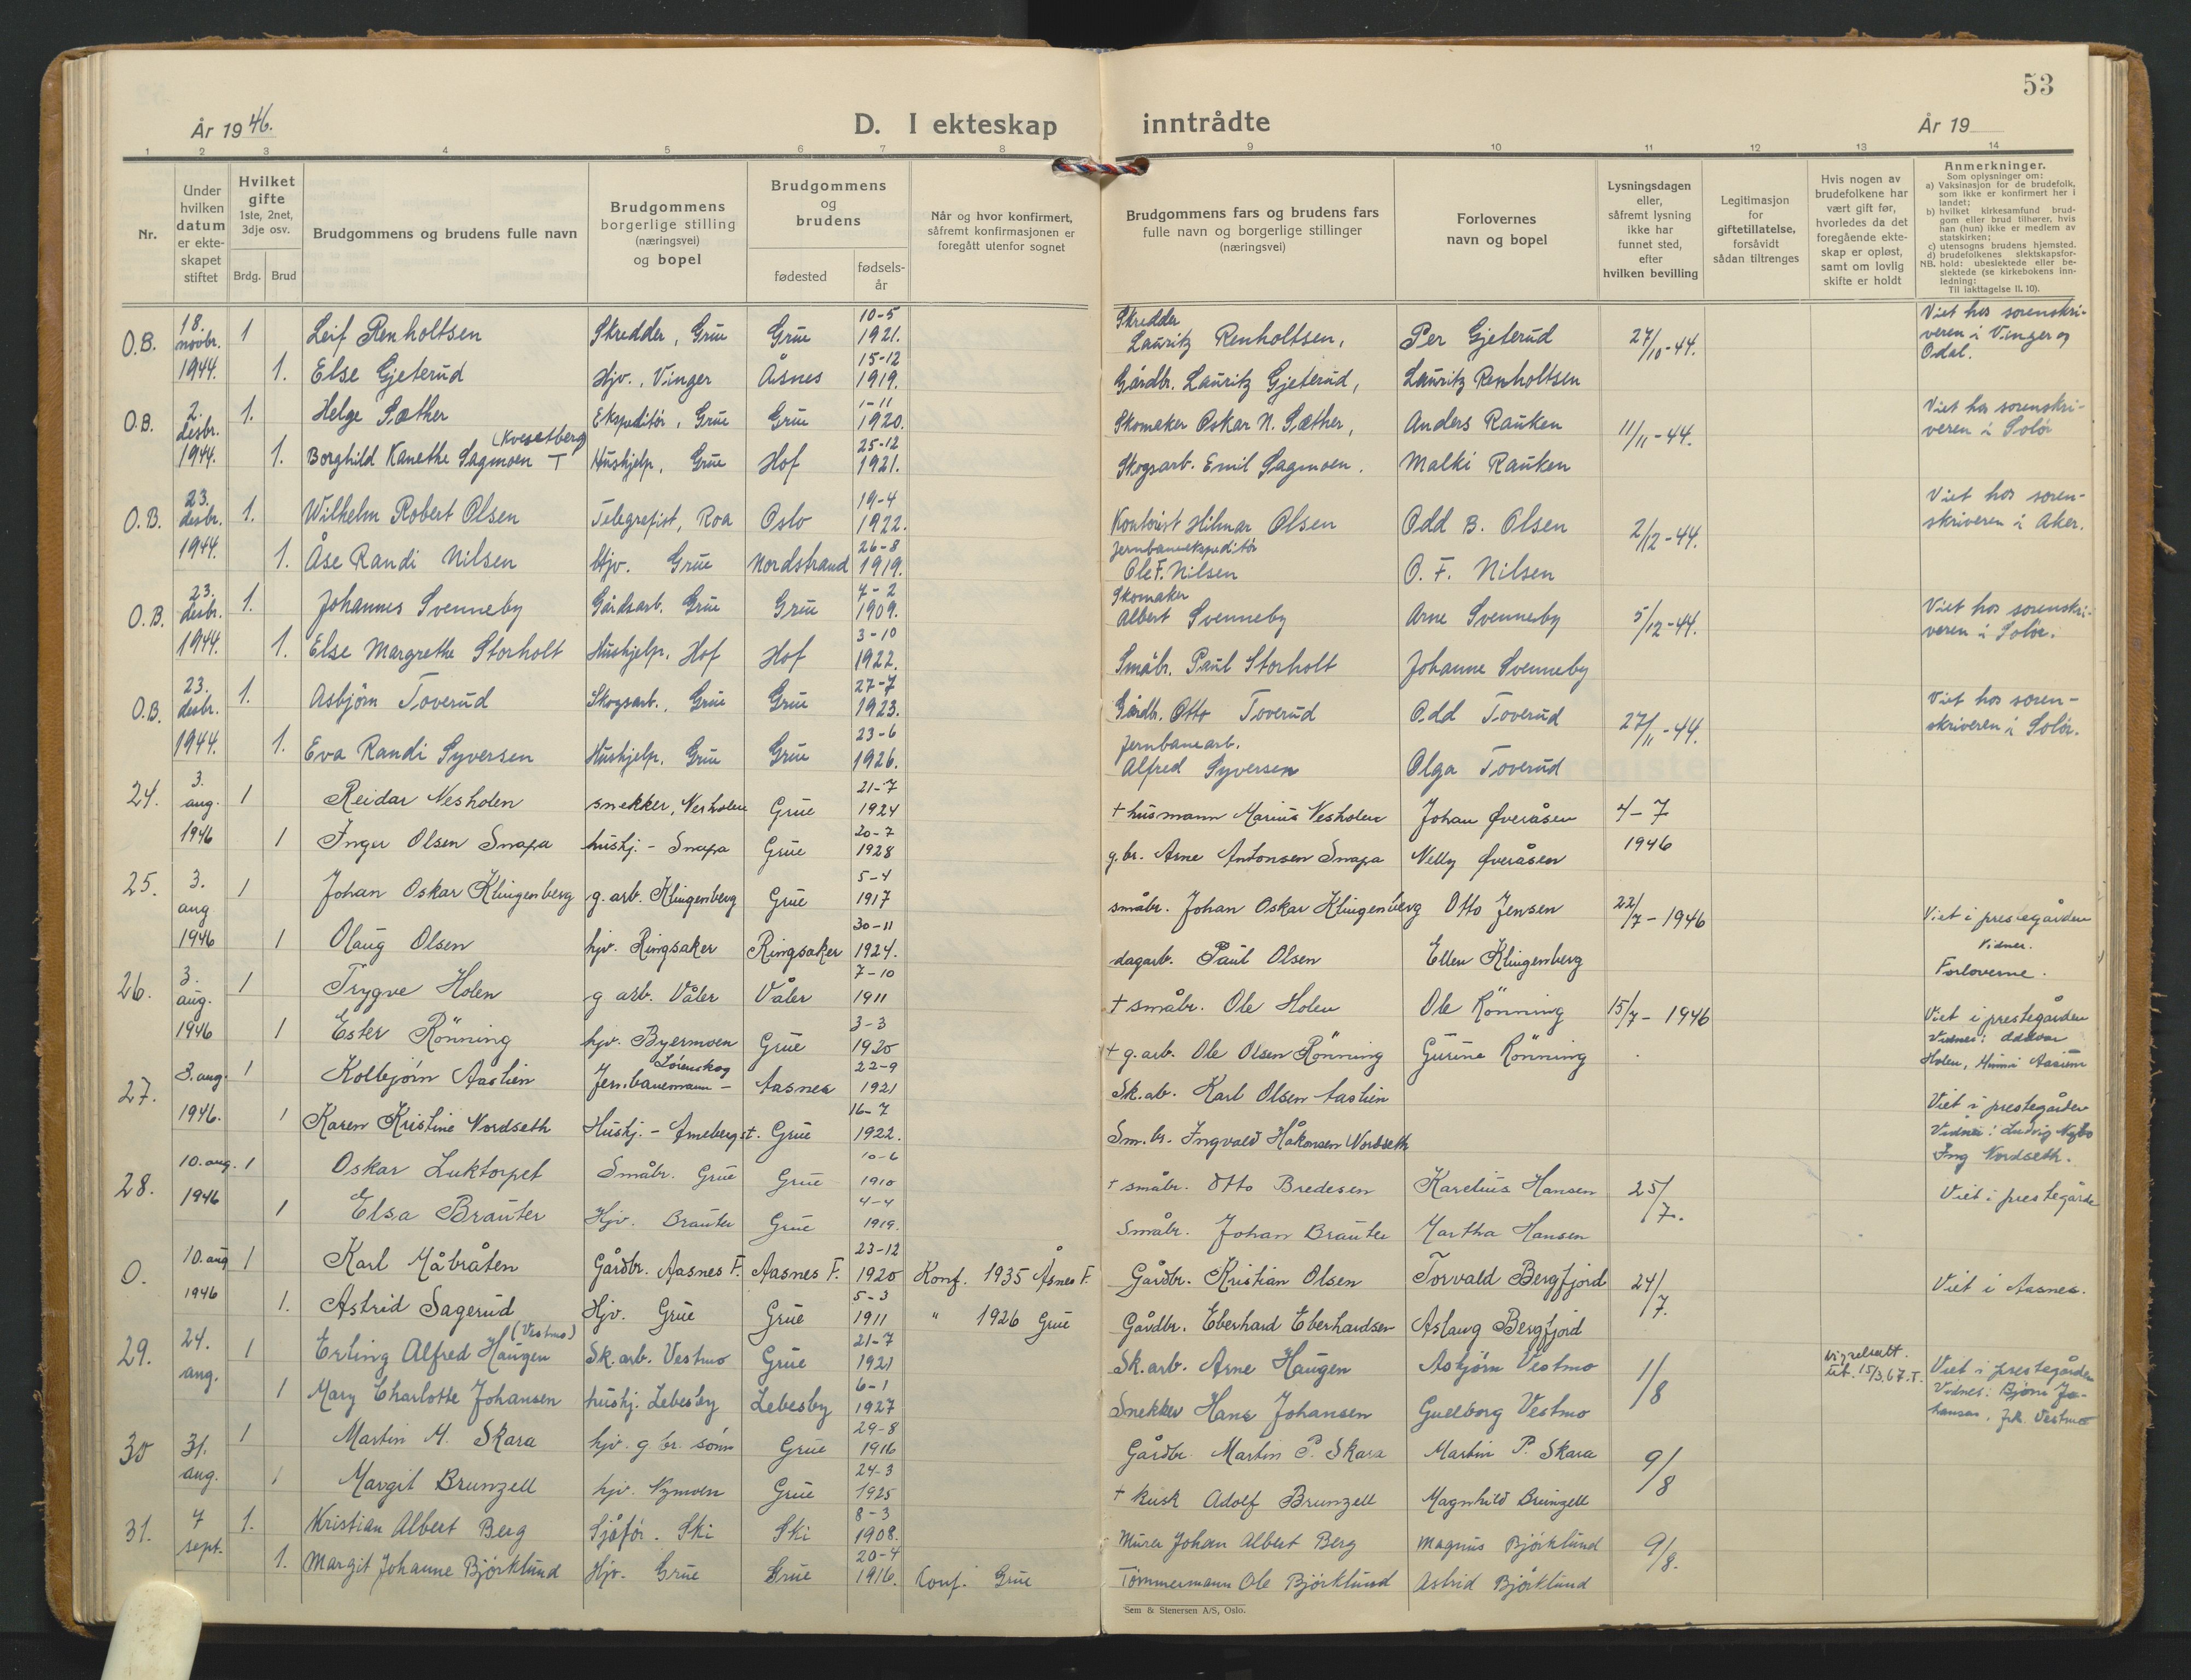 53
År 1946.
D. I ekteskap inntrådte
År 19
1 2 3 4 5 6 7 8 9 10 11 12 13 14
Nr.
Under hvilken datum er ekte-skapet stiftet
Hvilket gifte
1ste, 2net, 3dje osv.
Brdg. Brud
Brudgommens og brudens fulle navn
Brudgommens borgerlige stilling (næringsvei) og bopel
Brudgommens og brudens
fødested
fødsels-år
Når og hvor konfirmert, såfremt konfirmasjonen er foregått utenfor sognet
Brudgommens fars og brudens fars fulle navn og borgerlige stillinger (næringsvei)
Forlovernes navn og bopel
Lysningsdagen eller, såfremt lysning ikke har funnet sted, efter hvilken bevilling
Legitimasjon for giftetillatelse, forsåvidt sådan tiltrenges
Hvis nogen av brudefolkene har vært gift før, hvorledes da det foregående ekte-skap er opløst, samt om lovlig skifte er holdt
Anmerkninger.
Som oplysninger om:
a) Vaksinasjon for de brudefolk, som ikke er konfirmert her i landet;
b) hvilket kirkesamfund brud-gom eller brud tilhører, hvis han (hun) ikke er medlem av statskirken;
c) utensogns brudens hjemsted.
d) brudefolkenes slektskapsfor-hold: ubeslektede eller be-slektede (se kirkebokens inn-ledning:
NB. Til iakttagelse II, 10).
O.B. 18. novbr. 1944. 1 Leif Renholtsen Skredder, Grue Grue 10-5 1921. Skredder Lauritz Renholtsen, Per Gjeterud 27/10-44. Viet hos sorenskri-veren i Vinger og Odal.
1. Else Gjeterud Hjv., Vinger Åsnes 15-12 1919. Gårdbr. Lauritz Gjeterud, Lauritz Renholtsen
O.B. 2. desbr. 1944. 1. Helge Sæther Ekspeditör, Grue Grue 1-11 1920. Skomaker Oskar N. Sæther, Anders Rauken 11/11-44. Viet hos sorenskri-veren i Solör
1. Borghild Kanethe Sagmoen T (Kvesetberg Hushjelp, Grue Hof 25-12 1921. Skogsarb. Emil Sagmoen. Malki Rauken
O.B. 23. desbr. 1944. 1. Wilhelm Robert Olsen Telegrafist, Roa Oslo 19-4 1922. Kontorist Hilmar Olsen Odd B. Olsen 2/12-44. Viet hos soren-skriveren i Aker.
1. Åse Randi Nilsen Hjv. Grue Nordstrand 26-8 1919. Jernbaneekspeditör Ole F. Nilsen O. F. Nilsen
O.B. 23. desbr. 1944. 1. Johannes Svenneby Gårdsarb. Grue Grue 7-2 1909. Skomaker Albert Svenneby Arne Svenneby 5/12-44. Viet hos sorenskri-veren i Solör.
1. Else Margrethe Storholt Hushjelp, Hof Hof 3-10 1922. Småbr. Paul Storholt Johanne Svenneby
O.B. 23. desbr. 1944. 1. Asbjörn Toverud Skogsarb., Grue Grue 27-7 1923. Gårdb. Otto Toverud Odd Toverud 27/11-44. Viet hos soren-skriveren i Solör.
1. Eva Randi Syversen Hushjelp, Grue Grue 23-6 1926. Jernbanearb. Alfred Syversen Olga Toverud
24. 3. aug. 1946 1 Reidar Nesholen snekker, Nesholen Grue 21-7 1924 + husmann Marius Nesholen Johan Øveråsen 4-7 1946
1 Inger Olsen Snapa hushj. - Snapa Grue 20-7 1928 g.br. Arne Antonsen Snapa Nelly Øveråsen
25. 3. aug 1946 1 Johan Oskar Klingenberg g. arb. Klingenberg Grue 5-4 1917 småbr. Johan Oskar Klingenberg Otto Jensen 22/7-1946 Viet i prestegården Vidner. Forloverne.
1 Olaug Olsen hjv. Ringsaker Ringsaker 30-11 1924. dagarb. Paul Olsen Ellen Klingenberg
26. 3. aug. 1946 1 Trygve Holen g arb. Våler Våler 7-10 1911 + småbr. Ole Holen Ole Rönning 15/7-1946 Viet i prestegården Vidner: Holen,
1 Ester Rönning hjv. Byermoen Grue 3-3 1920 + g.arb. Ole Olsen Rönning Gurine Rönning
27. 3. aug. 1946. 1 Kolbjörn Aaslien Lørenskog Jernbanemann - Aasnes 22-9 1921 Sk.ab. Karl Olsen Aaslien Viet i prestegården Vidner: Ludvig Nybo Ing Nordseth.
1 Karen Kristine Nordseth Hushj. - Arneberg st. Grue 16-7 1922. Sm.br. Ingvald Håkonsen Nordseth
28. 10. aug. 1946 1 Oskar Luktorpet Småbr. Grue Grue 10-6 1910 + småbr. Otto Bredesen Karelius Hansen 25/7. Viet i prestegården
1 Elsa Bråuter Hjv. Bråuter Grue 4-4 1919. Småbr. Johan Bråuter Martha Hansen
O. 10. aug 1946 1 Karl Måbråten Gårdbr. Aasnes F. Aasnes F. 23-12 1920 Konf. 1935 Åsnes F. Gårdbr. Kristian Olsen Torvald Bergfjord 24/7. Viet i Aasnes.
1. Astrid Sagerud Hjv. Grue Grue 5-3 1911 " 1926 Grue Gårdbr. Eberhard Eberhardsen Aslaug Bergfjord
29. 24. aug. 1 Erling Alfred Haugen (Vestmo) Sk.arb. Vestmo Grue 21-7 1921 Sk.arb. Arne Haugen Asbjørn Vestmo 1/8 Vigselsatt. utt. 15/3.67.T. Viet i prestegården Vidner: Bjørn Jo-hansen, Vestmo
1 Mary Charlotte Johansen hushj. Lebesby Lebesby 6-1 1927 Snekker Hans Johansen Guelborg Vestmo
30 31. aug. 1 Martin M. Skara hjv. g br. sønn Grue 29-8 1916 Gårdbr. Martin P. Skara Martin P. Skara 9/8
1 Margit Brunzell hjv. Nymoen Grue 24-3 1925 + kusk Adolf Brunzell Magnhild Brunzell
31. 7 sept. 1. Kristian Albert Berg Sjåfør. Ski Ski 8-3 1908. Murer Johan Albert Berg Magnus Bjørklund 9/8.
1. Margit Johanne Bjørklund Hjv. Grue Grue 20-4 1916. Conf. Grue Tømmermann Ole Bjørklund Astrid Bjørklund
Sem & Stenersen A/S, Oslo.